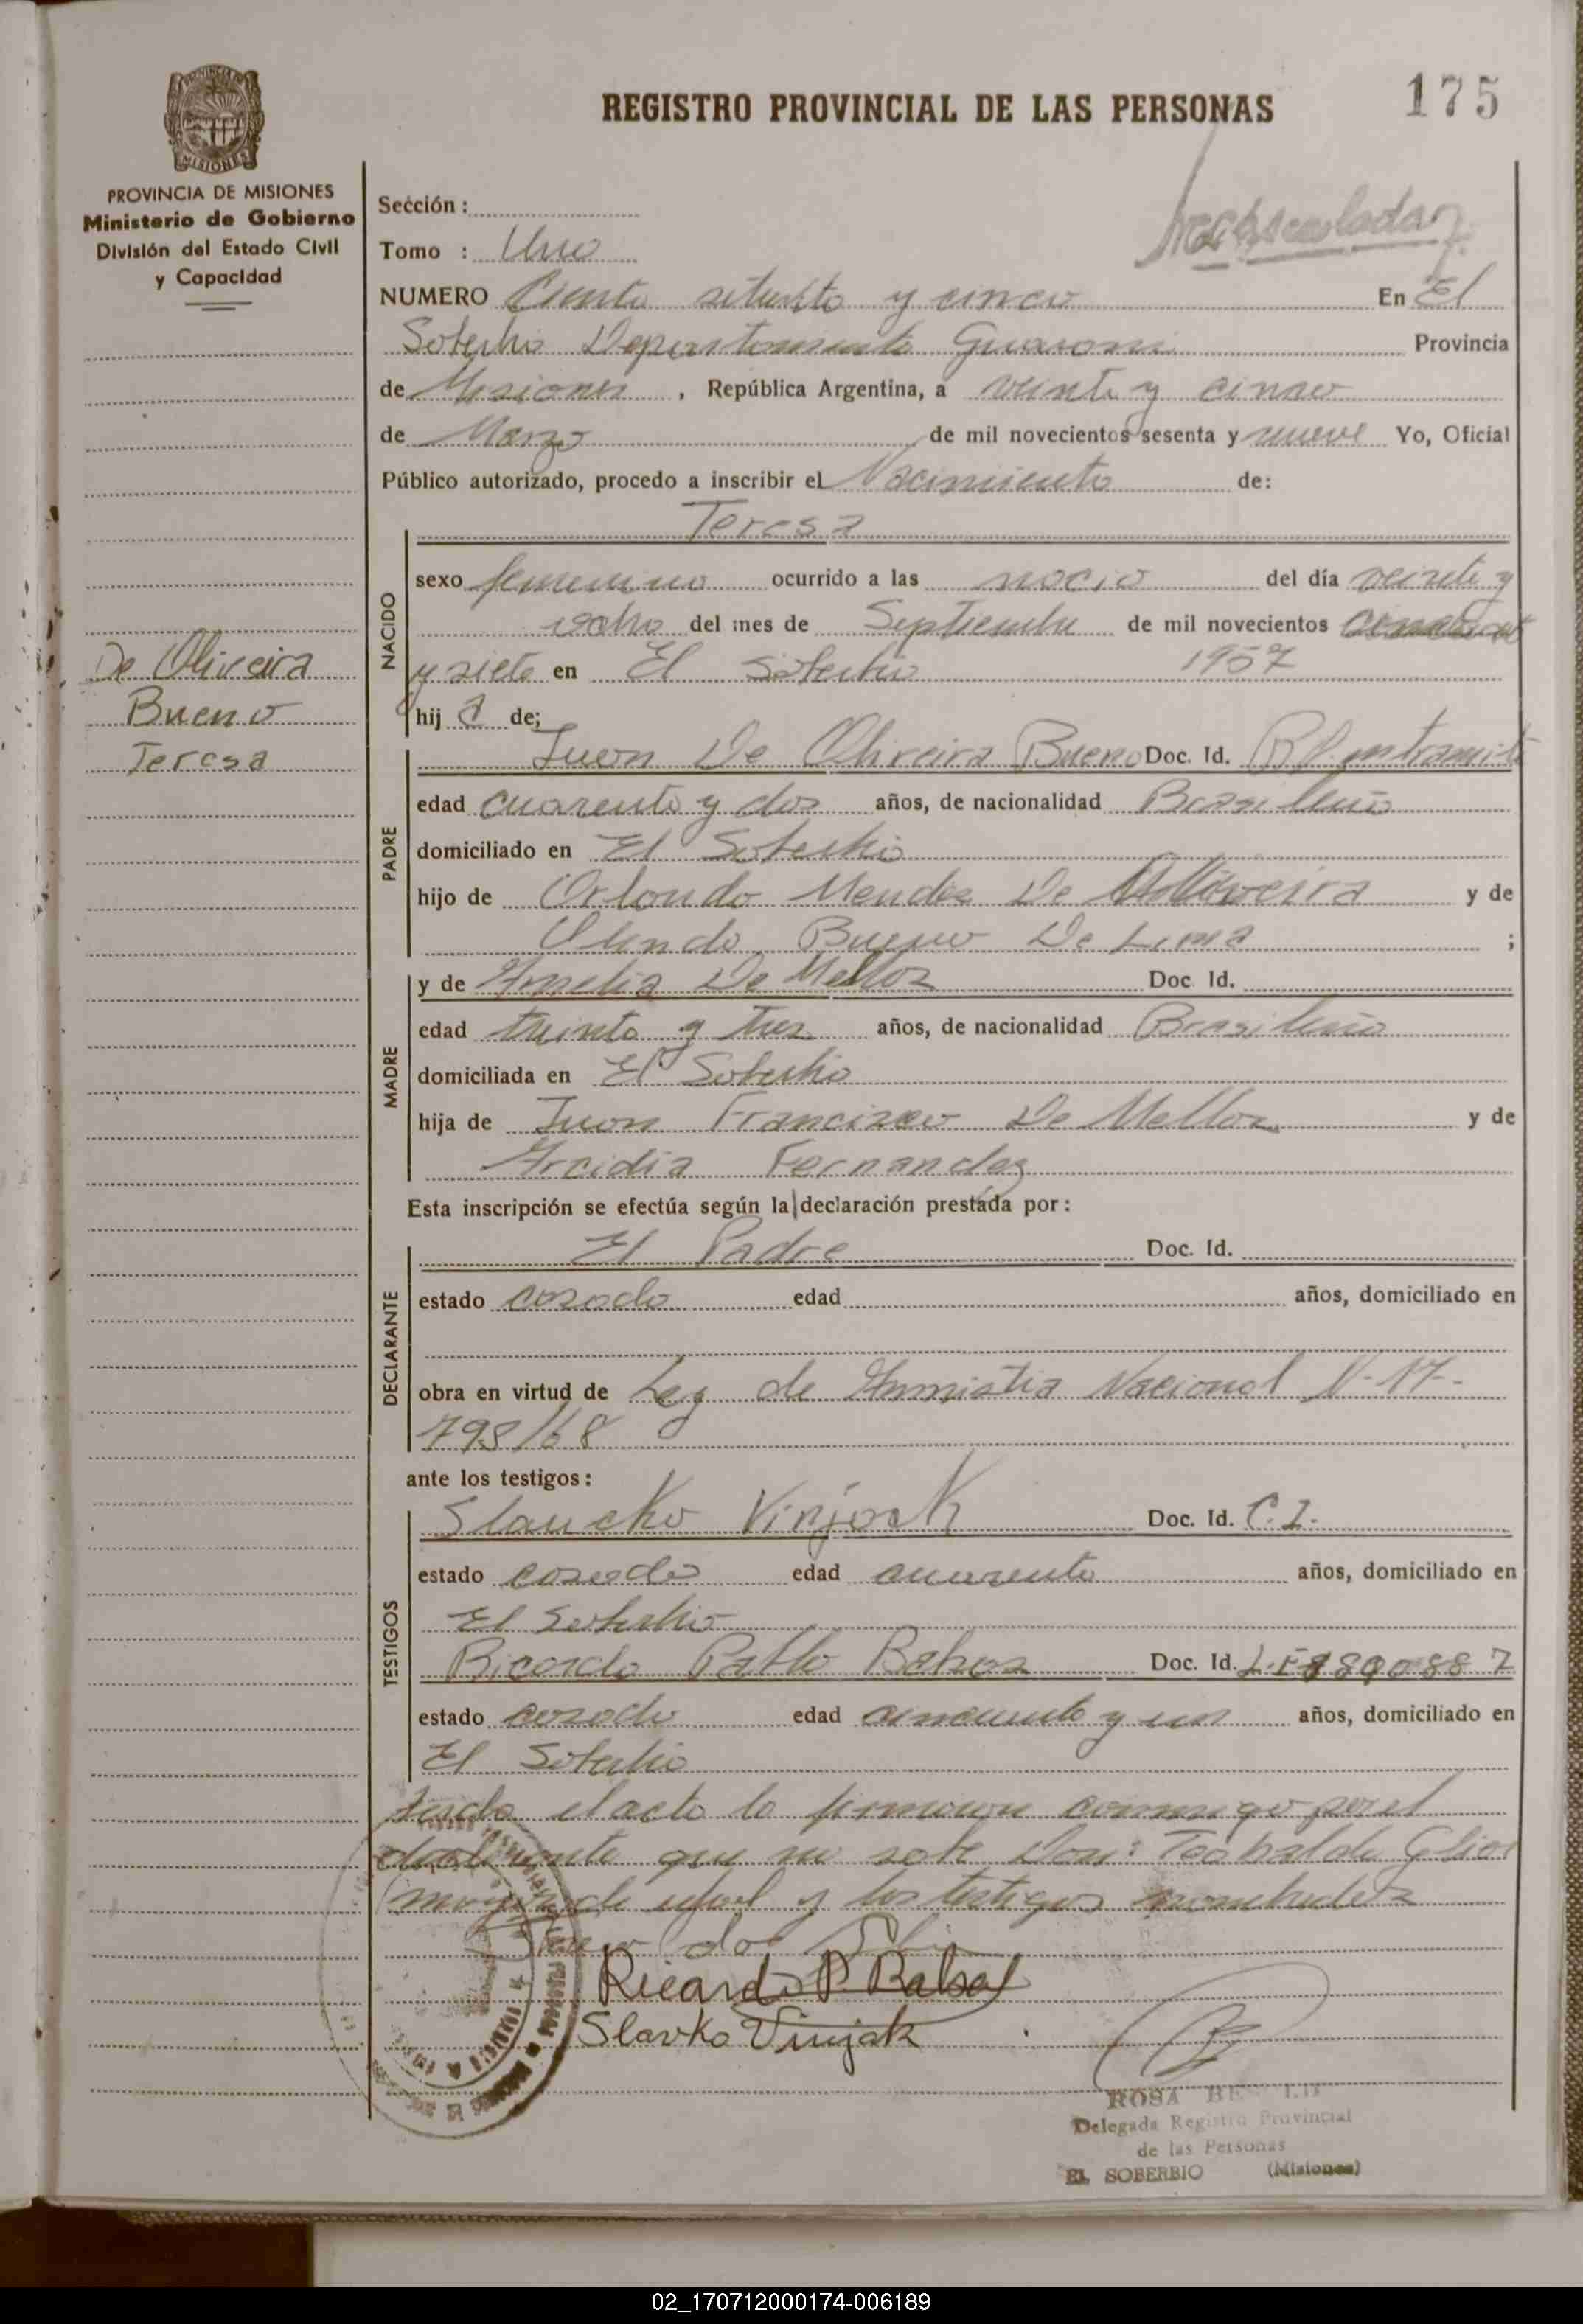 175
REGISTRO PROVINCIAL DE LAS PERSONAS
PROVINCIA DE MISIONES
MISIONES
PROVINCIA DE MISIONES
Ministerio de Gobierno
División del Estado Civil
y Capacidad
Sección :
Tomo : Uno
NUMERO Ciento setenta y cinco En El
Soberbio Departamento Guarani Provincia
de Misiones , República Argentina, a veinte y cinco
de Marzo de mil novecientos sesenta y nueve Yo, Oficial
Público autorizado, procedo a inscribir el Nacimiento de:
Teresa
NACIDO
sexo femenino ocurrido a las nació del día veinte y
ocho del mes de Septiembre de mil novecientos
y siete en El Soberbio 1957
hij a de;
De Oliveira
Bueno
Teresa
PADRE
Juan De Oliveira Bueno Doc. Id. en tramite
edad cuarenta y dos años, de nacionalidad Brasileño
domiciliado en El Soberbio
hijo de Orlando Mendez De Oliveira y de
Bueno De Lima ;
MADRE
y de Amelia De Melloz Doc. Id.
edad treinta y tres años, de nacionalidad Brasileña
domiciliada en El Soberbio
hija de Juan Francisco De Melloz y de
Arcidia Fernandez
Esta inscripción se efectúa según la declaración prestada por :
DECLARANTE
El Padre Doc. Id.
estado casado edad años, domiciliado en
obra en virtud de Ley de Amnistia Nacional N-17-
795/68
ante los testigos :
TESTIGOS
Slaucko Vinjock Doc. Id. C.I.
estado casado edad cuarenta años, domiciliado en
El Soberbio
Ricardo Pablo Doc. Id.
estado casado edad cincuenta y un años, domiciliado en
El Soberbio
el acto lo firmaron conmigo por el
declarante que no sabe Don: Teobaldo
mayor de edad y los testigos nombrados
Ricardo P.
Slavko Vinjak
ROSA
Delegada Registro Provincial
de las Personas
EL SOBERBIO (Misiones)
02_170712000174-006189